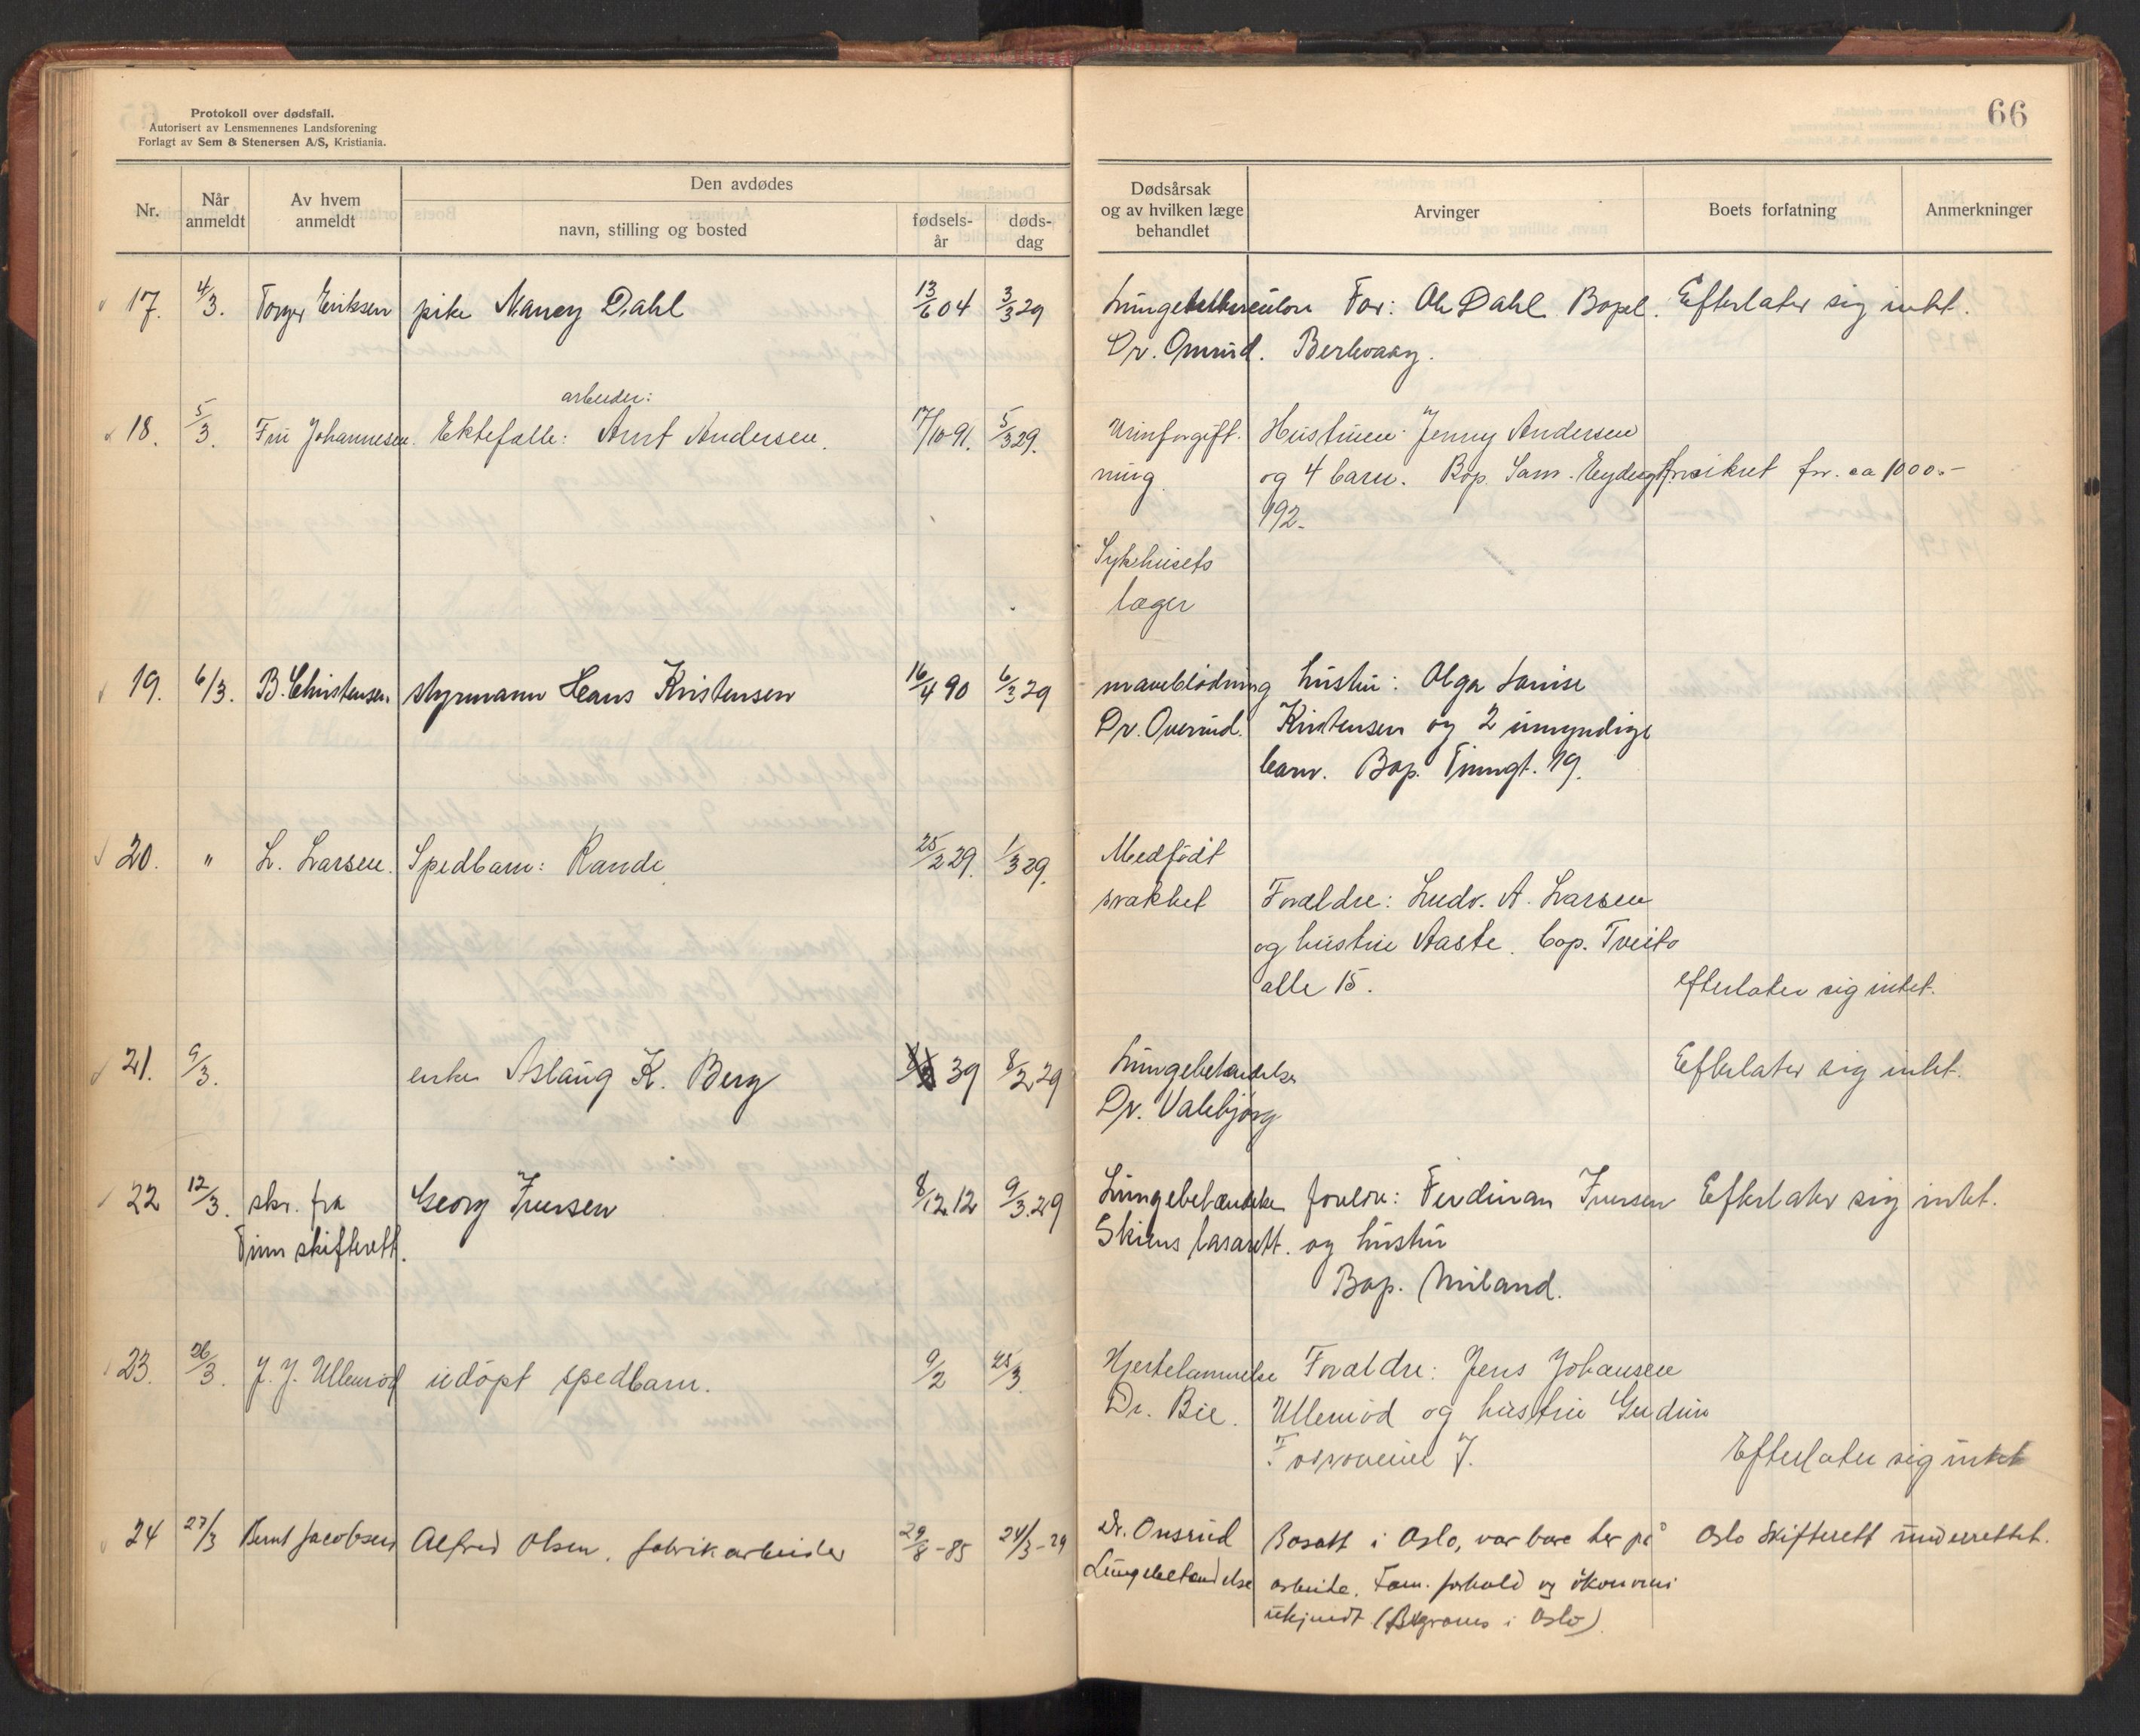 Protokoll over dødsfall.
Autorisert av Lensmennenes Landsforening
Forlagt av Sem & Stenersen A/S, Kristiania.
Nr.
Når anmeldt
Av hvem anmeldt
Den avdødes
navn, stilling og bosted
fødsels-år
døds-dag
66
Dødsårsak og av hvilken læge behandlet
Arvinger
Boets forfatning
Anmerkninger
17. 4/3. Torger Eriksen pike Nancy Dahl 13/6 04 3/3 29 Lungetuberculose Far: Ole Dahl Bopel. Efterlater sig intet.
Dr. Onsrud. Berlvaag.
arbeider:
18. 5/3. Fru Johannesen. Ektefelle: Arnt Andersen. 17/10 91. 5/3 29. Urinforgift- Hustruen Jenny Andersen
ning og 4 barn. Bop. Sam. Eydesgt. forsikret for ca 1000.-
192.
Sykehusets
læger
19. 6/3. B. Christensen. styrmann Hans Kristensen 16/4 90 6/3 29 maveblødning hustru: Olga Louise
Dr. Onsrud. Kristensen og 2 umyndige
barn. Bop. Tinngt. 19.
20. " L. Larsen. Spedbarn: Rande 25/2 29. 1/3 29. Medfødt
svakhet Forældre: Ludv. A. Larsen
og hustru Aaste. bop. Tveito
alle 15. efterlater sig intet.
21. 9/3. enke Aslaug K. Berg 39 8/2 29 Lungebetændelse Efterlater sig intet.
Dr. Valebjørg
22 12/3. skr. fra Georg Iversen 8/12 12 9/3. 29 Lungebetændelse foreldre: Ferdinan Iversen Efterlater sig intet.
Tinn skifterett. Skiens lasarett. og hustru
Bop. Miland.
23. 26/3. J. J. Ullerød udøpt spedbarn. 9/2 25/3. Hjertelammelse Forældre: Jens Johansen
Dr. Bie. Ullerød og hustru Gudrun
J. Efterlater sig intet
24 27/3 Bernt Jacobsen Alfred Olsen, fabrikarbeider 29/8 - 85 24/3 - 29 Dr. Onsrud Bosatt i Oslo, var bare her på Oslo Skifterett underrettet.
Lungebetændelse arbeide. Fam. forhold og økonomi
ukjendt (Begraves i Oslo)